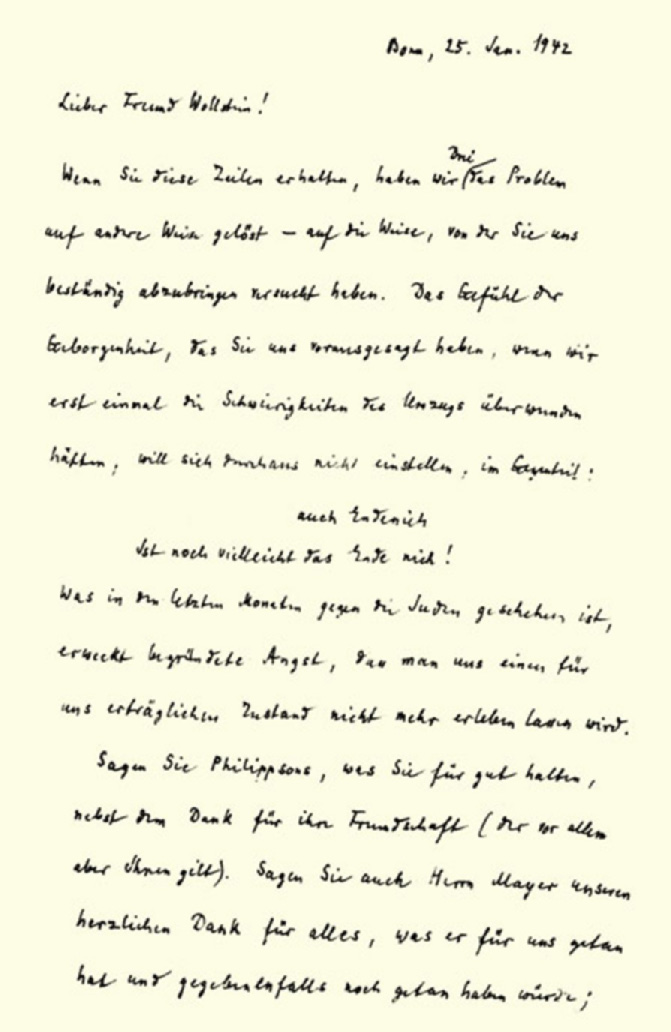 Bonn, 25. Jan. 1942
Lieber Freund Wollstein!
Drei
Wenn Sie diese Zeilen erhalten, haben wir das Problem
auf andere Weise gelöst – auf die Weise, von der Sie uns
beständig abzubringen versucht haben. Das Gefühl der
Geborgenheit, das Sie uns vorausgesagt haben, wenn wir
erst einmal die Schwierigkeiten des Umzugs überwunden
hätten, will sich durchaus nicht einstellen, im Gegenteil:
auch Endenich
Ist noch vielleicht das Ende nich!
Was in den letzten Monaten gegen die Juden geschehen ist,
erweckt begründete Angst, dass man uns einen für
uns erträglichen Zustand nicht mehr erleben lassen wird.
Sagen Sie Philippsons, was Sie für gut halten,
nebst dem Dank für ihre Freundschaft (der vor allem
aber Ihnen gilt). Sagen Sie auch Herrn Mayer unseren
herzlichen Dank für alles, was er für uns getan
hat und gegebenenfalls noch getan haben würde;